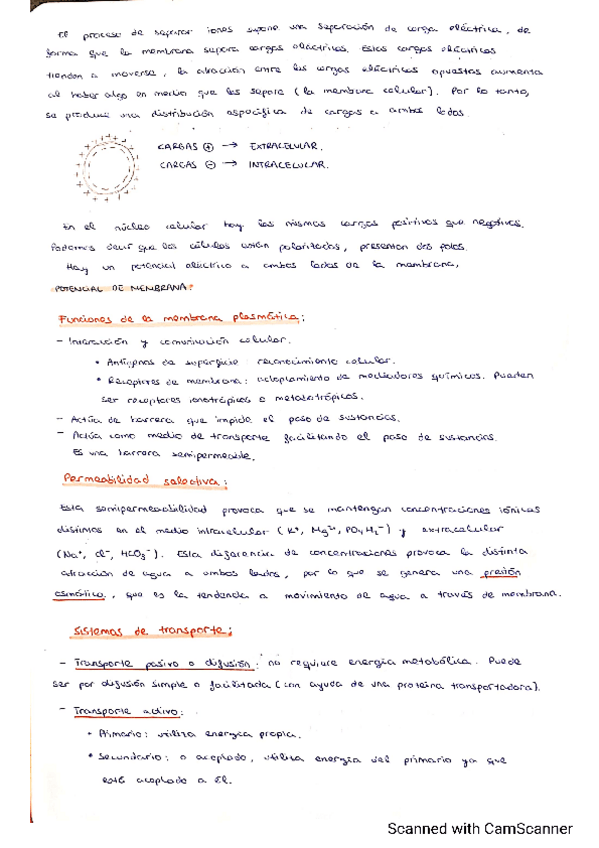 El proceso de separar iones supone una separación de carga eléctrica, de
forma que la membrana separa cargas eléctricas. Estas cargas eléctricas
tienden a moverse, la atracción entre las cargas eléctricas opuestas aumenta
al haber algo en medio que las separa (la membrana celular). Por lo tanto,
se produce una distribución específica de cargas a ambos lados.
CARGAS + → EXTRACELULAR.
CARGAS - → INTRACELULAR.
En el núcleo celular hay las mismas cargas positivas que negativas.
Podemos decir que las células están polarizadas, presentan dos polos.
Hay un potencial eléctrico a ambos lados de la membrana,
POTENCIAL DE MEMBRANA.
Funciones de la membrana plasmática:
- Interacción y comunicación celular.
• Antígenos de superficie: reconocimiento celular.
• Receptores de membrana: acoplamiento de mediadores químicos. Pueden
ser receptores ionotrópicos o metabotrópicos.
- Actúa de barrera que impide el paso de sustancias.
- Actúa como medio de transporte facilitando el paso de sustancias.
Es una barrera semipermeable.
Permeabilidad selectiva:
Esta semipermeabilidad provoca que se mantengan concentraciones iónicas
distintas en el medio intracelular (K⁺, Mg²⁺, PO₄H₂⁻) y extracelular
(Na⁺, Cl⁻, HCO₃⁻). Esta diferencia de concentraciones provoca la distinta
atracción de agua a ambos lados, por lo que se genera una presión
osmótica, que es la tendencia a movimiento de agua a través de membrana.
Sistemas de transporte:
- Transporte pasivo o difusión: no requiere energía metabólica. Puede
ser por difusión simple o facilitada (con ayuda de una proteína transportadora).
- Transporte activo:
• Primario: utiliza energía propia.
• Secundario: o acoplado, utiliza energía del primario ya que
está acoplado a él.
Scanned with CamScanner